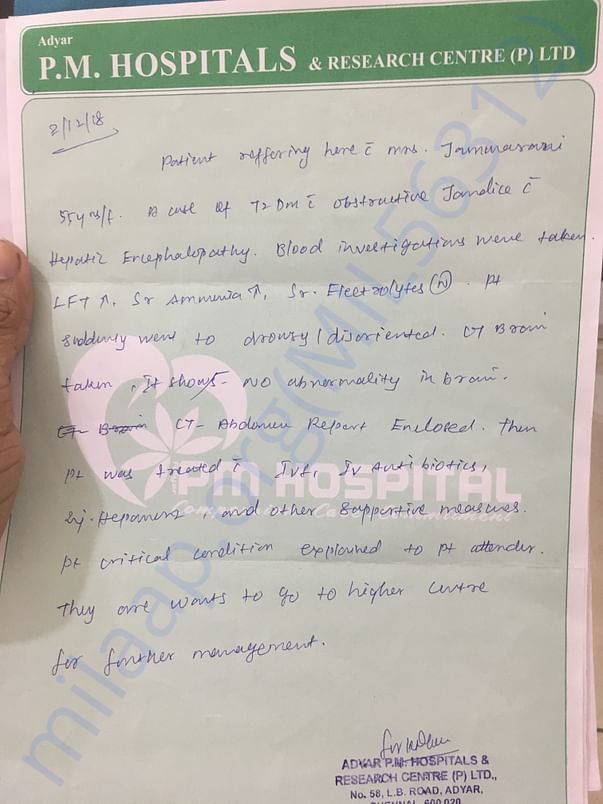 Adyar
P.M. HOSPITALS & RESEARCH CENTRE (P) LTD
2/12/18
Patient reffering here c̄ mrs. Jamunarani
55yrs/f. A case of T2DM c̄ obstructive Jandice c̄
Hepatic Encephalopathy. Blood investigations were taken.
LFT ↑, Sr Ammunia ↑, Sr. Electrolytes (N). Pt
suddenly went to drowsy/disoriented. CT Brain
taken, It shows- no abnormality in brain.
CT- Brain CT- Abdomen Report Enclosed. Then
pt was treated c̄ IVF, IV Antibiotics,
PM HOSPITAL
Inj. Hepamerz, and other supportive measures.
pt critical condition explained to pt attender.
They are wants to go to higher centre
for further management.
ADYAR P.M. HOSPITALS &
RESEARCH CENTRE (P) LTD.,
No. 58, L.B. ROAD, ADYAR,
CHENNAI-600 020
milaap.org(MIL56312)